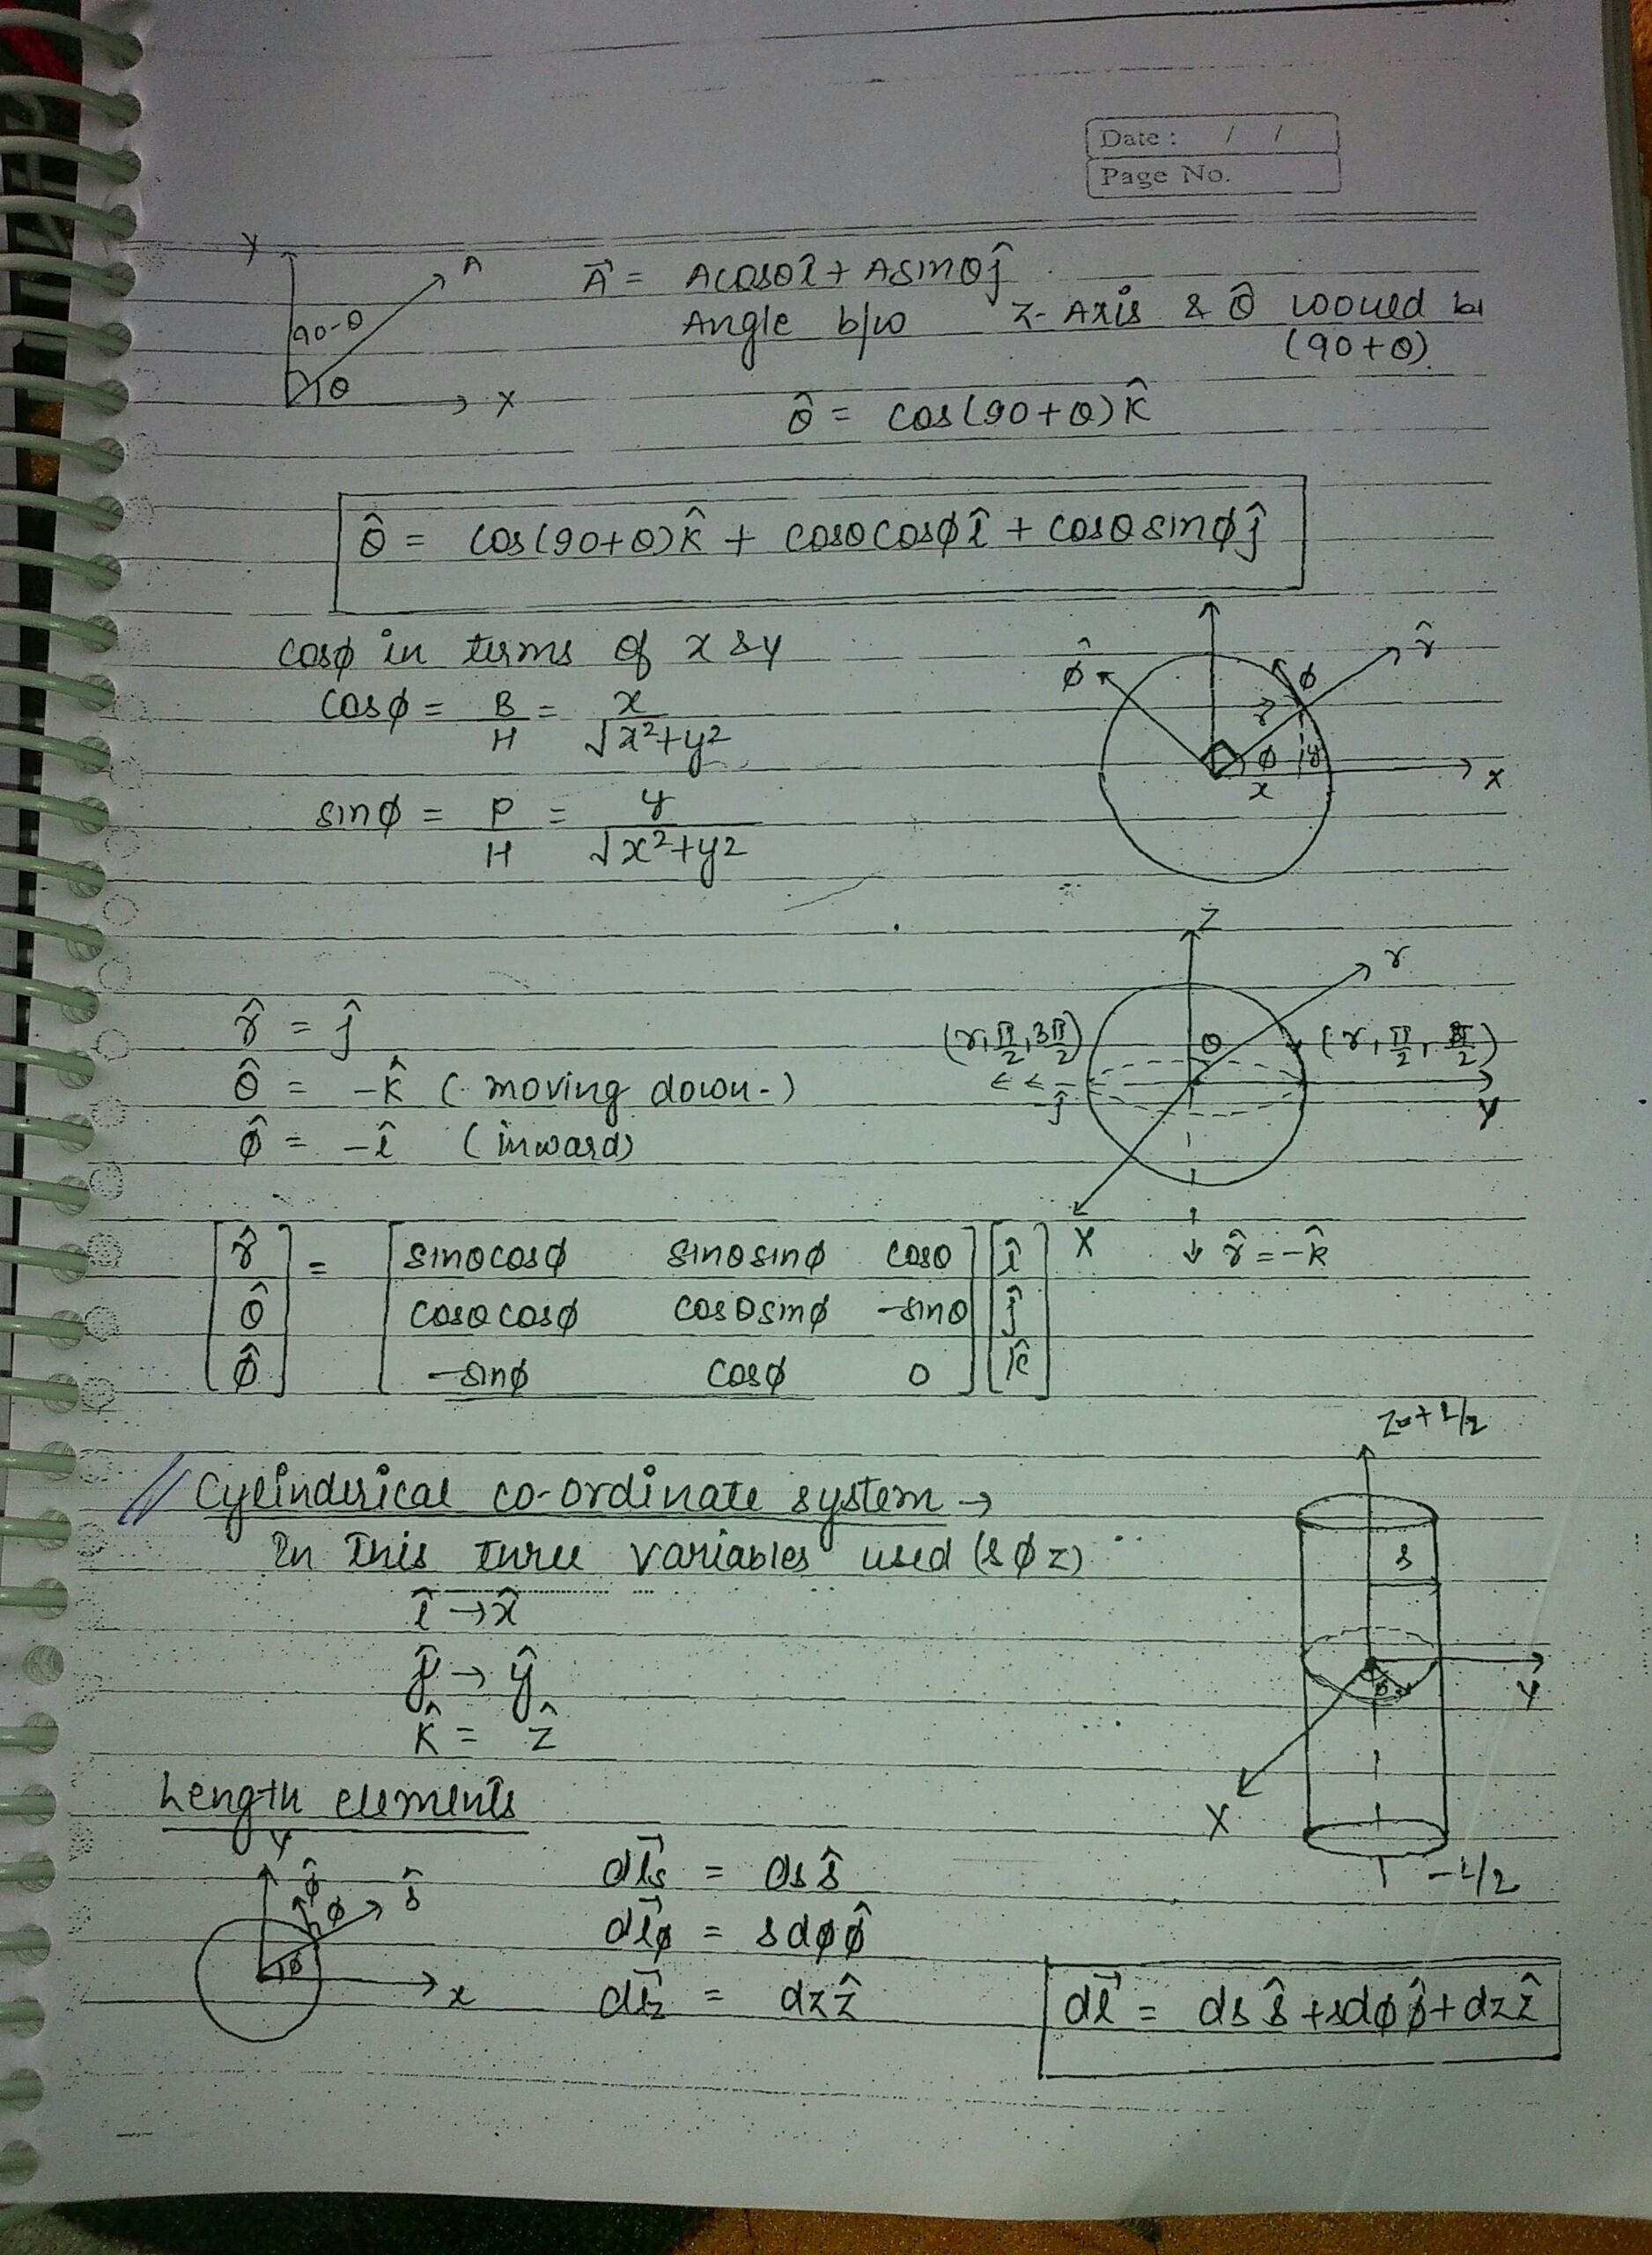 Date : / /
Page No.
Y
A
90-θ
θ
X
A⃗ = Acosθî + Asinθĵ
Angle b/w Z-Axis & θ̂ would be
(90+θ)
θ̂ = cos(90+θ)k̂
θ̂ = cos(90+θ)k̂ + cosθcosφî + cosθsinφĵ
cosφ in terms of x & y
cosφ = B/H = x/√x²+y²
sinφ = P/H = y/√x²+y²
φ̂
φ
r̂
r⃗
φ
y
x
X
r̂ = ĵ
θ̂ = -k̂ (moving down-)
φ̂ = -î (inward)
Z
r
(r, π/2, 3π/2)
θ
(r, π/2, π/2)
ĵ
Y
X
r̂ = -k̂
[r̂] = [sinθcosφ sinθsinφ cosθ] [î]
[θ̂] [cosθcosφ cosθsinφ -sinθ] [ĵ]
[φ̂] [-sinφ cosφ 0] [k̂]
Cylinderical co-ordinate system →
In This three variables used (s φ z)
î → x̂
ĵ → ŷ
k̂ = ẑ
+L/2
s
φ
Y
X
-L/2
Length elements
Y
φ̂
φ
ŝ
φ
x
dl⃗s = ds ŝ
dl⃗φ = sdφ φ̂
dl⃗z = dz ẑ
dl⃗ = ds ŝ + sdφ φ̂ + dz ẑ